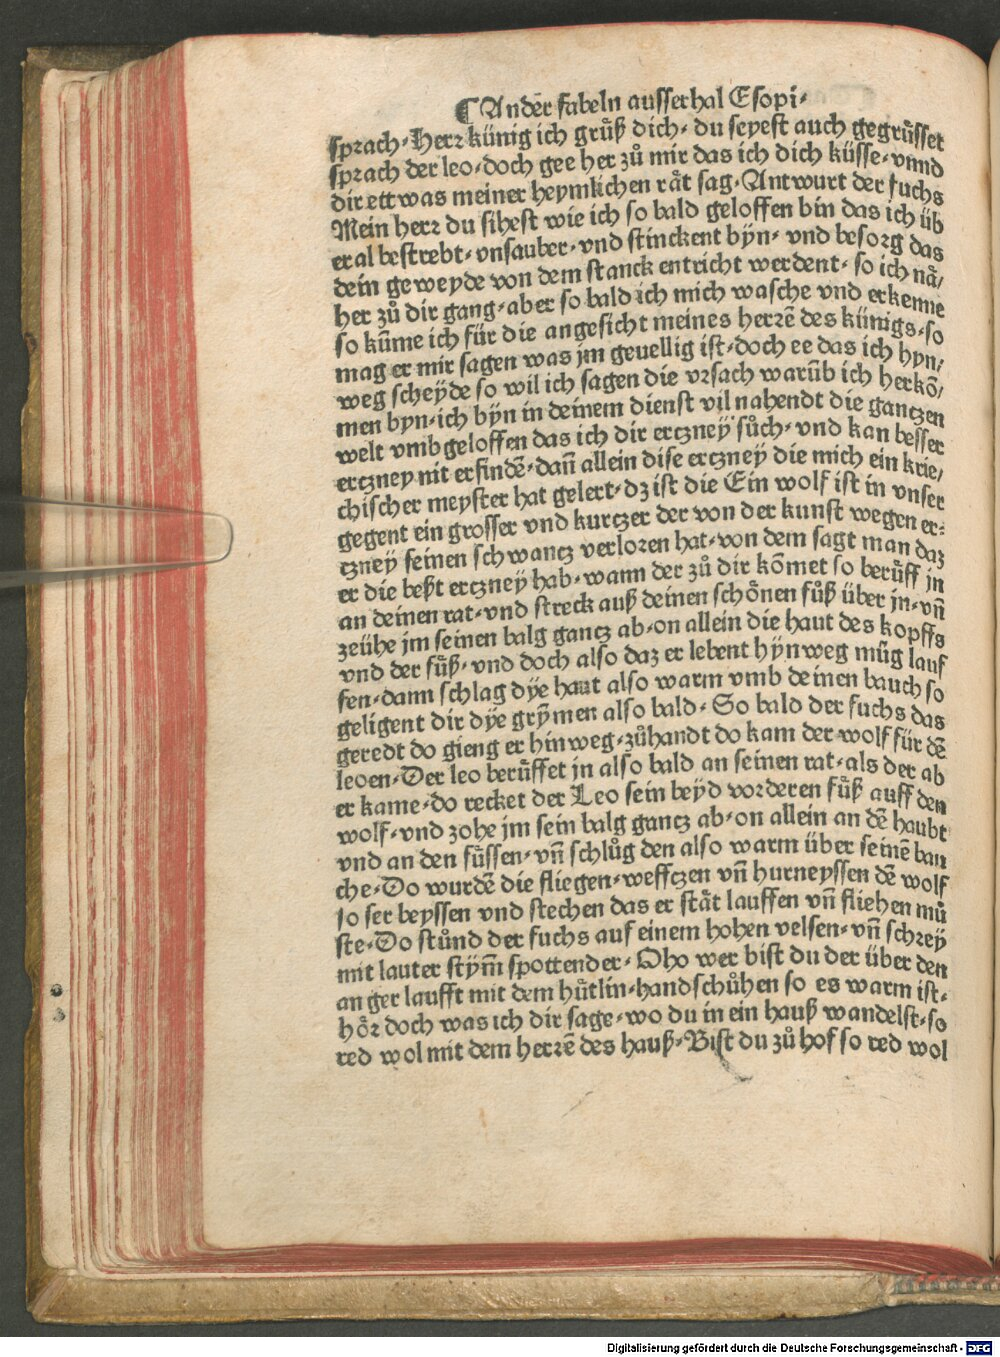 ¶ Ander fabeln ausserhal Esopi⸗
sprach⸗Herr künig ich grüß dich⸗ du seyest auch gegrüsset
sprach der leo⸗doch gee her zů mir das ich dich küsse⸗vnnd
dir ettwas meiner heymlichen rät sag⸗Antwurt der fuchs
Mein herr du sihest wie ich so bald geloffen bin das ich üb
eral bestrebt⸗ vnsauber⸗vnd stinckent byn⸗ vnd besorg das
dein geweyde von dem stanck entricht werdent⸗ so ich nä⸗
her zů dir gang⸗aber so bald ich mich wasche vnd erkenne
so kum̄e ich für die angesicht meines herrē des künigs⸗so
mag er mir sagen was jm geuellig ist⸗doch ee das ich hyn⸗
weg scheyde so wil ich sagen die vrsach warūb ich herkō⸗
men byn⸗ich byn in deinem dienst vil nahendt die ganczen
welt vmbgeloffen das ich dir erczney sůch⸗vnd kan besser
erczney nit erfindē⸗dañ allein dise erczney die mich ein krie⸗
chischer meyster hat gelert⸗dz ist die Ein wolf ist in vnser
gegent ein grosser vnd kurczer der von der kunst wegen er⸗
czney seinen schwancz verloren hat⸗von dem sagt man daz
er die beßt erczney hab⸗wann der zů dir kōmet so berüff jn
an deinen rat⸗vnd streck auß deinen schönen fůß über jn⸗vñ
zeühe jm seinen balg gancz ab⸗on allein die haut des kopffs
vnd der füß⸗vnd doch also daz er lebent hynweg müg lauf
fen⸗dann schlag dye haut also warm vmb deinen bauch so
geligent dir dye grymen also bald⸗ So bald der fuchs das
geredt do gieng er hinweg⸗zůhandt do kam der wolf für dē
leoen⸗Der leo berüffet jn also bald an seinen rat⸗als der ab
er kame⸗do recket der Leo sein beyd vorderen füß auff den
wolf⸗vnd zohe jm sein balg gancz ab⸗on allein an dē haubt
vnd an den füssen⸗vñ schlůg den also warm über seinē bau
che⸗Do wurdē die fliegen⸗weffczen vñ hurneyssen dē wolf
so ser beyssen vnd stechen das er stät lauffen vñ fliehen mů
ste⸗Do stůnd der fuchs auf einem hohen velsen⸗vñ schrey
mit lauter stym̄ spottender⸗ Oho wer bist du der über den
anger laufft mit dem hütlin⸗handschůhen so es warm ist⸗
hör doch was ich dir sage⸗wo du in ein hauß wandelst⸗so
red wol mit dem herrē des hauß⸗Bist du zů hof so red wol
Digitalisierung gefördert durch die Deutsche Forschungsgemeinschaft - DFG